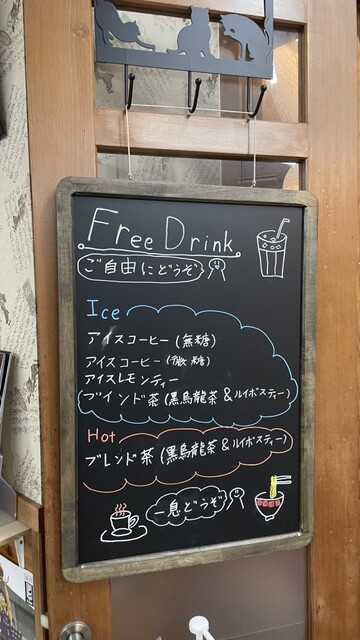 Free Drink
ご自由にどうぞ
Ice
アイスコーヒー(無糖)
アイスコーヒー(微糖)
アイスレモンティー
ブインド茶(黒烏龍茶&ルイボスティー)
Hot
ブレンド茶(黒烏龍茶&ルイボスティー)
一息どうぞ